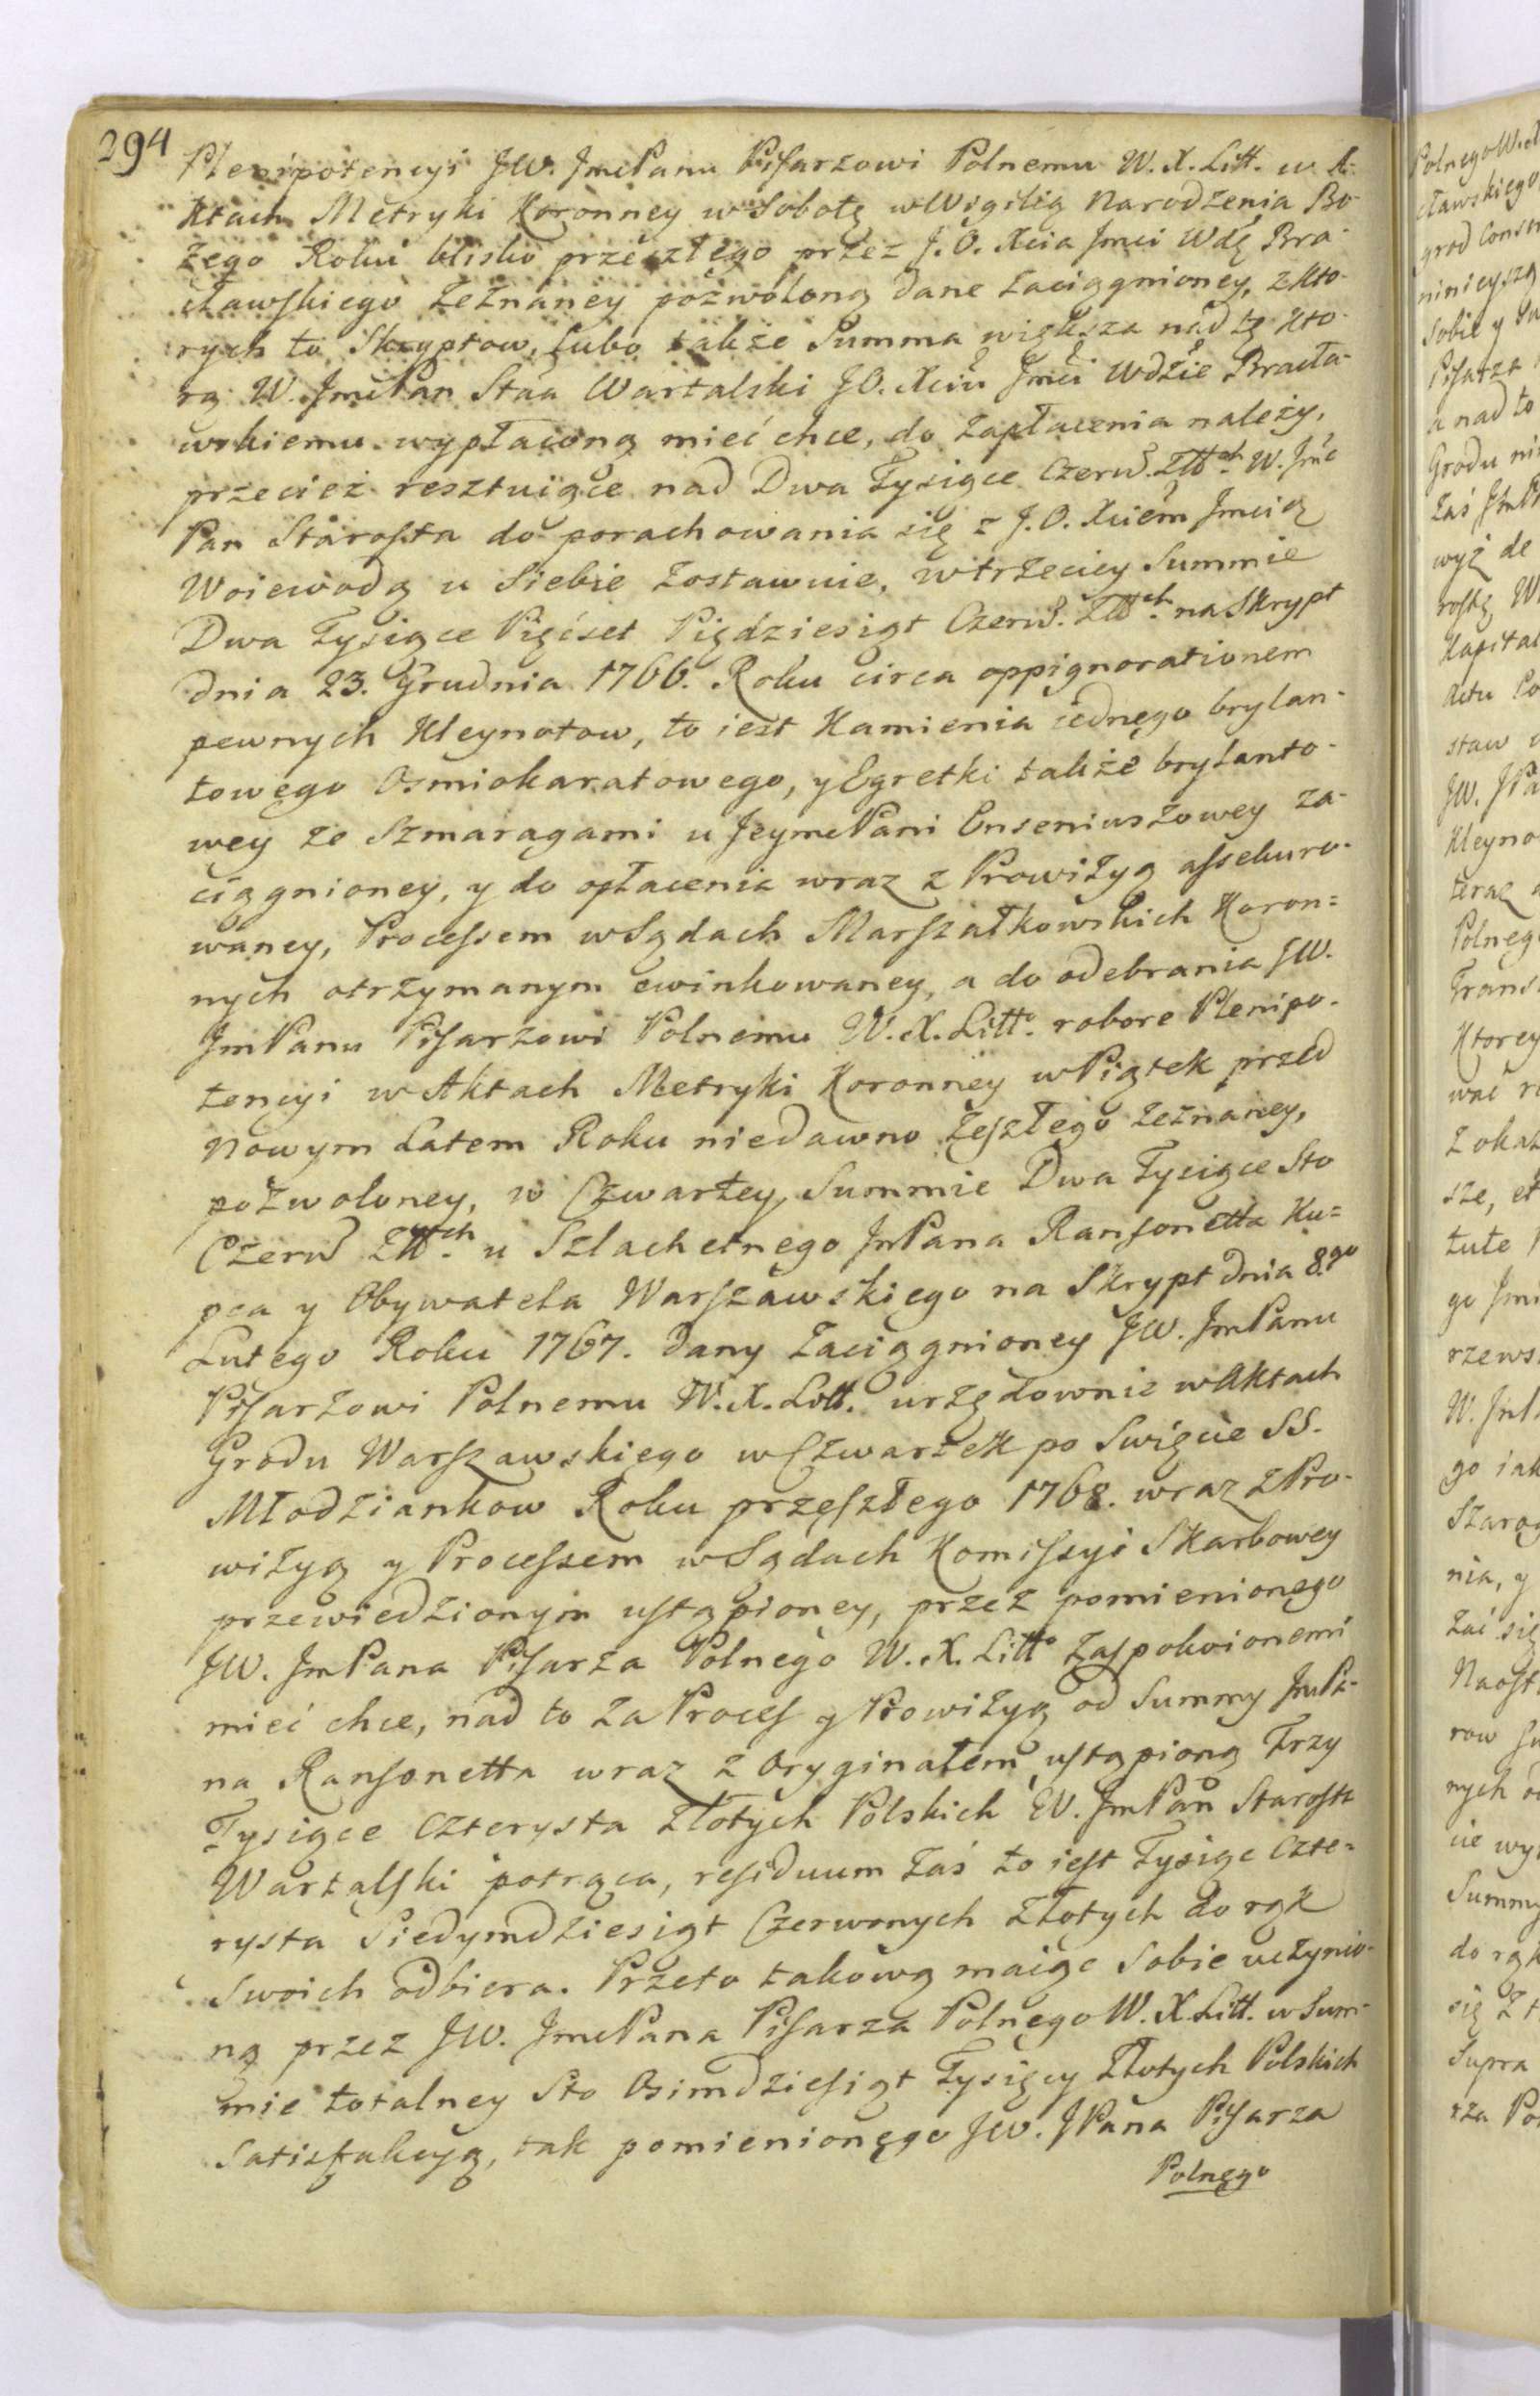 294
Plenipotencyi JW. JmcPanu Pisarzowi Polnemu W. X. Litt. w A-
ktach Metryki Koronney w Sobotę w Wigilią Narodzenia Bo-
żego Roku blisko przeszłego przez J. O. Xcia Jmci Wdę Bra-
cławskiego zeznaney pozwoloną dane zaciągnioney, z kto-
rych to Skryptow, lubo także Summa większa nad tę kto-
rą W. JmcPan Staa Wartalski JO. Xciu Jmci Wdzie Bracła-
wskiemu wypłaconą mieć chce, do zapłacenia należy,
przecież resztuiące nad Dwa Tysiące Czerw. Złłch W. Jmc
Pan Starosta do porachowania się z J. O. Xciem Jmcią
Woiewodą u Siebie zostawuie, w trzeciey Summie
Dwa Tysiące Pięćset Piędziesiąt Czerw. Złłch na Skrypt
dnia 23. Grudnia 1766. Roku circa oppignorationem
pewnych Kleynotow, to iest Kamienia iednego brylan-
towego Osmiokaratowego, y Egretki także brylanto-
wey ze Szmaragami u JeymcPani Enseniuszowey za-
ciągnioney, y do opłacenia wraz z Prowizyą assekuro-
waney, Processem w Sądach Marszałkowskich Koron=
nych otrzymanym ewinkowaney, a do odebrania JW.
JmPanu Pisarzowi Polnemu W. X. Litto. robore Plenipo-
tencyi w Aktach Metryki Koronney w Piątek przed
Nowym Latem Roku niedawno zeszłego zeznaney,
pozwoloney, w Czwartey Summie Dwa Tysiące Sto
Czerw Złłch u Szlachetnego JmPana Ransonetta Ku=
pca y Obywatela Warszawskiego na Skrypt dnia 8.go
Lutego Roku 1767. dany zaciągnioney JW. JmPanu
Pisarzowi Polnemu W. X. Litt. urzędownie w Aktach
Grodu Warszawskiego w Czwartek po Swięcie SS.
Młodziankow Roku przeszłego 1768. wraz z Pro-
wizyą y Processem w Sądach Komissyi Skarbowey
przewiedzionym ustąpioney, przez pomienionego
JW. JmPana Pisarza Polnego W. X. Litto zaspokoionemi
mieć chce, nad to za Proces y Prowizyą od Summy JmPa-
na Ransonetta wraz z Oryginałem ustąpioną Trzy
Tysiące Czterysta Złotych Polskich W. JmPan Starosta
Wartalski potrąca, residuum zaś to iest Tysiąc Czte=
rysta Siedymdziesiąt Czerwonych Złotych do rąk
Swoich odbiera. Przeto takową maiąc Sobie uczynio-
ną przez JW. JmcPana Pisarza Polnego W. X. Litt. w Sum-
mie totalney Sto Osimdziesiąt Tysięcy Złotych Polskich
Satisfakcyą, tak pomienionego JW. JPana Pisarza
Polnego